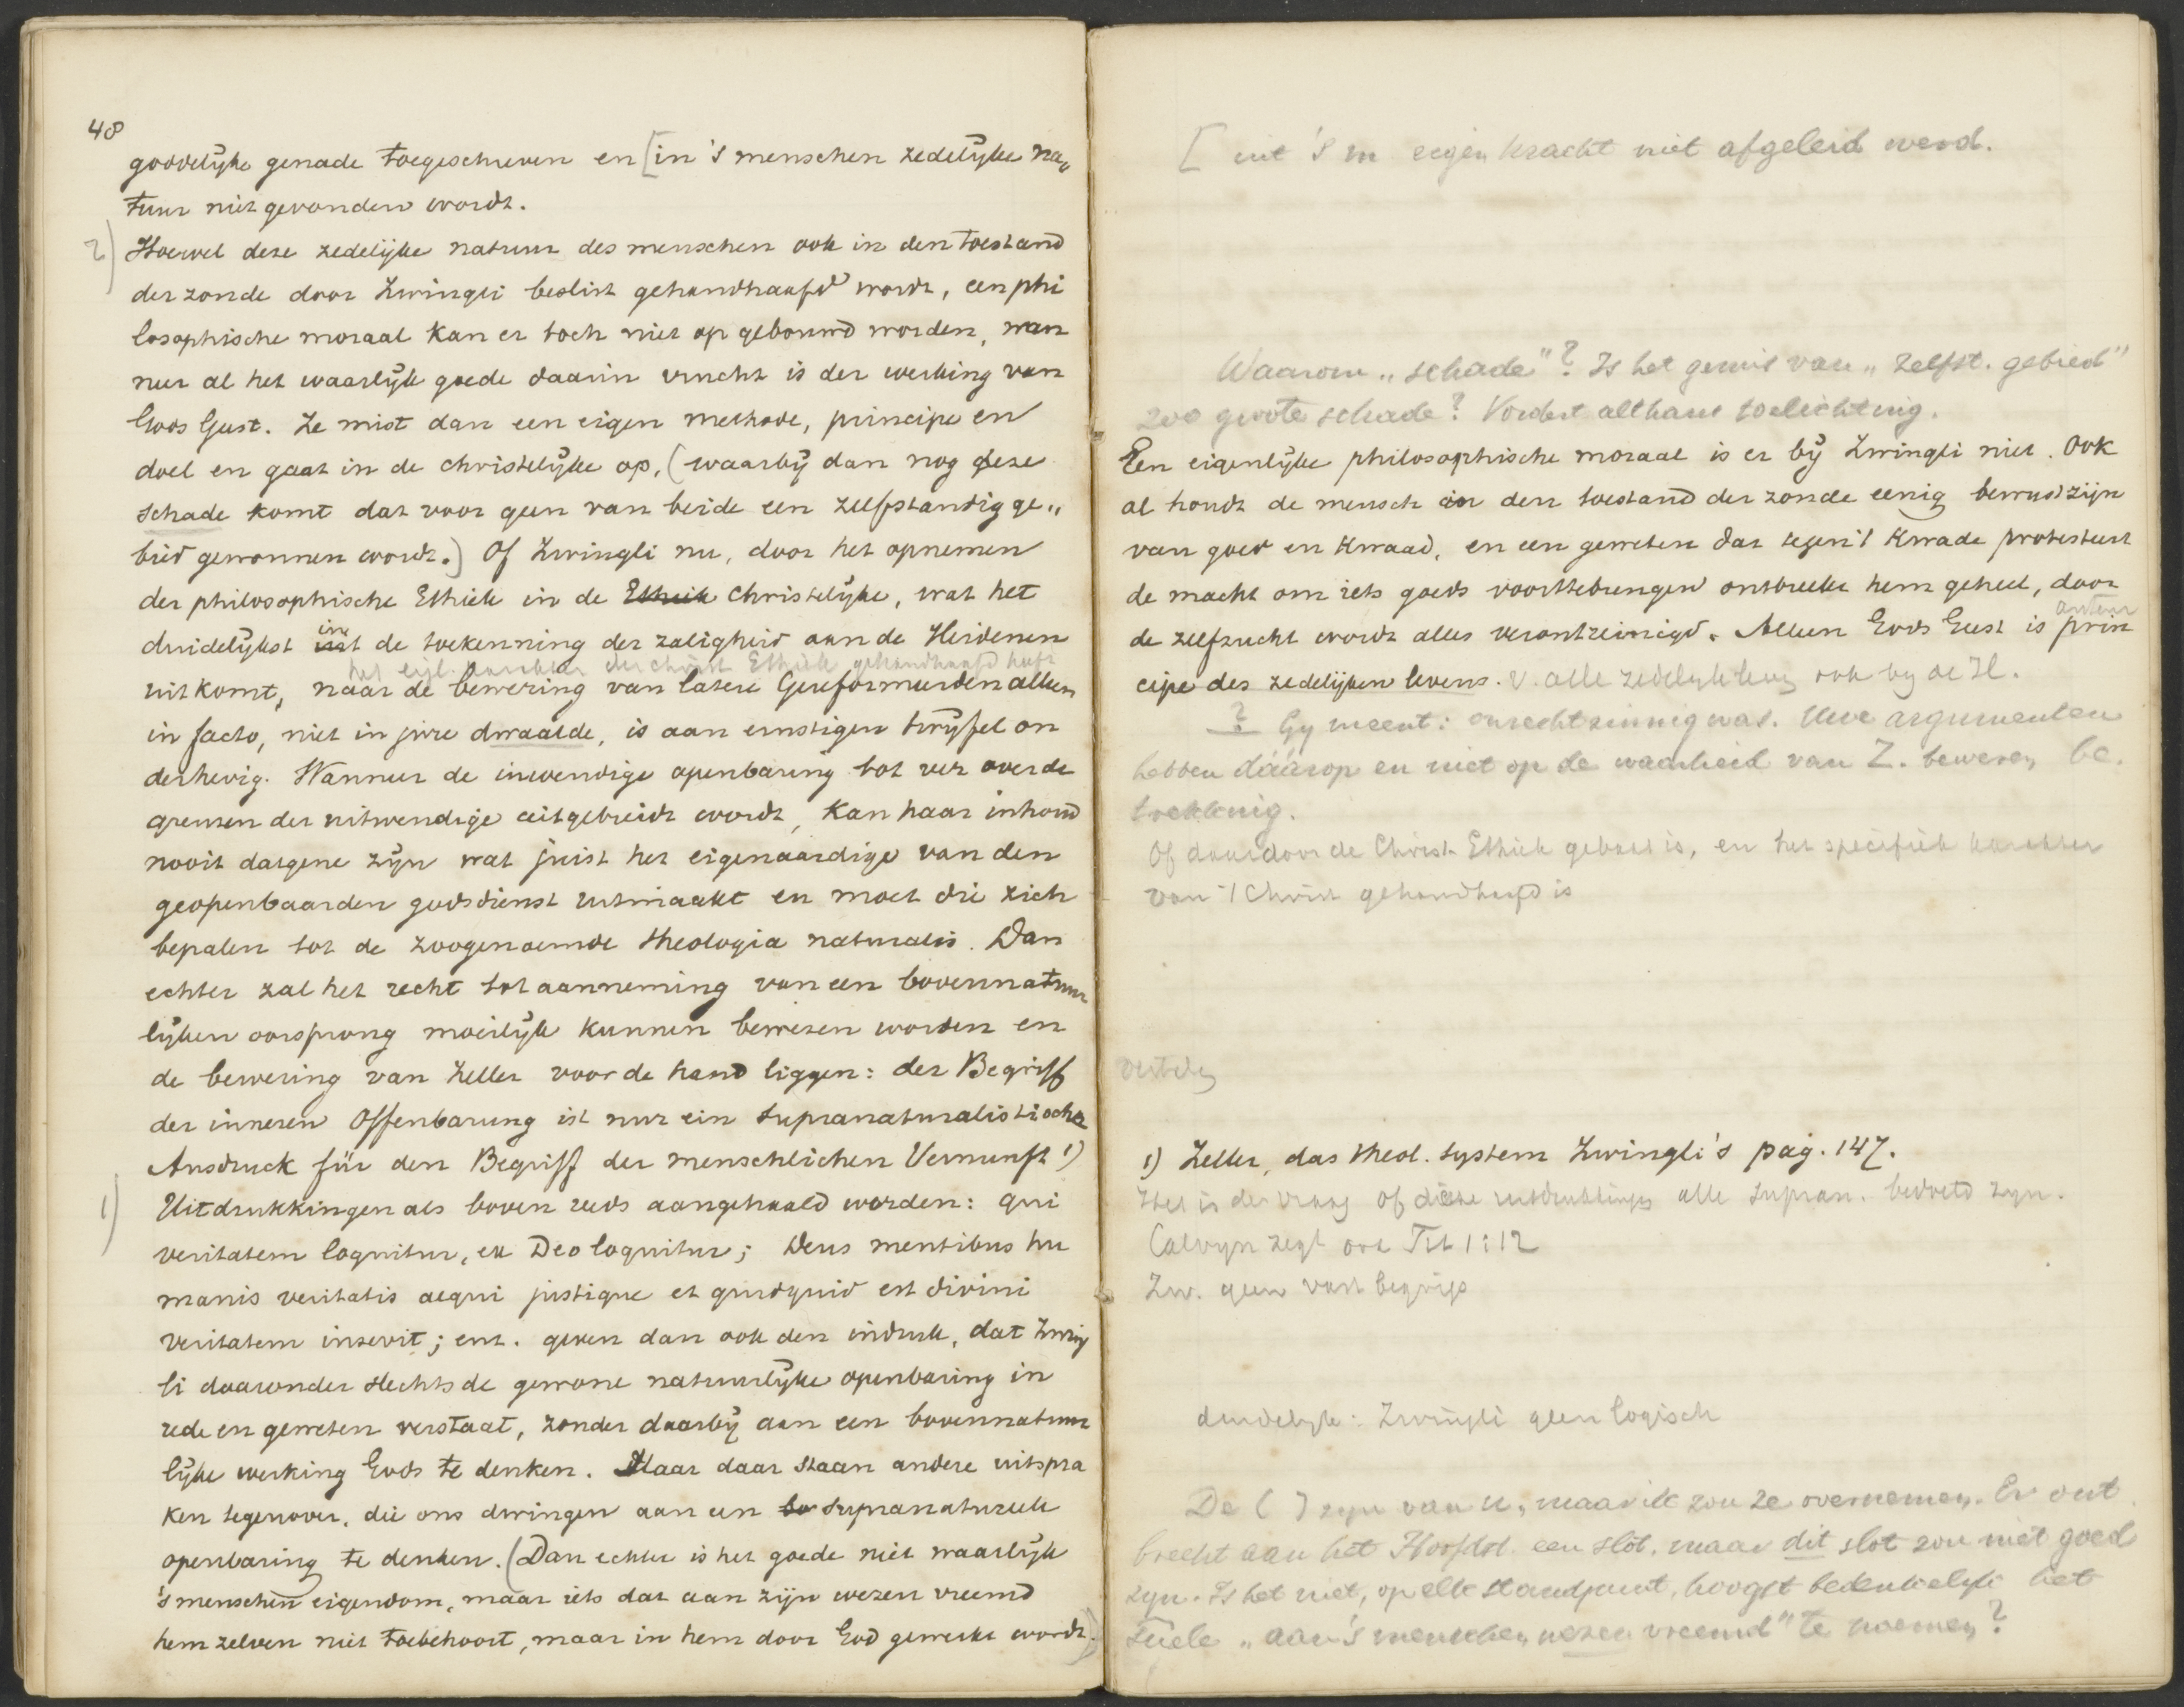 48
goddelijke genade toegeschreven en [in 's menschen zedelijke na„
tuur niet gevonden wordt.
2) Hoewel deze zedelijke natuur des menschen ook in den toestand
der zonde door Zwingli beslist gehandhaafd wordt, een phi
losophische moraal kan er toch niet op gebouwd worden, wan
neer al het waarlijk goede daarin vrucht is der werking van
Gods Geest. Ze mist dan een eigen methode, principe en
doel en gaat in de christelijke op, (waarbij dan nog deze
schade komt dat voor geen van beide een zelfstandig ge„
bied gewonnen wordt.) Of Zwingli nu, door het opnemen
der philosophische Ethiek in de Ethiek Christelijke, wat het
duidelijkst in de toekenning der zaligheid aan de Heidenen
het eigl. karakter der Christ Ethiek gehandhaafd heeft
uitkomt, naar de bewering van latere Gereformeerden alleen
in facto, niet in jure dwaalde, is aan ernstigen twijfel on
derhevig. Wanneer de inwendige openbaring tot ver over de
grenzen der uitwendige uitgebreidt wordt, kan haar inhoud
nooit datgene zijn wat juist het eigenaardige van den
geopenbaarden godsdienst uitmaakt en moet die zich
bepalen tot de zoogenoemde theologia naturalis. Dan
echter zal het recht tot aanneming van een bovennatuur
lijken oorsprong moeilijk kunnen bewezen worden en
de bewering van Zeller voor de hand liggen: der Begriff
der inneren Offenbarung ist nur ein supranaturalistischer
Ausdruck für den Begriff der menschlichen Vernunft 1)
1) Uitdrukkingen als boven reeds aangehaald worden: qui
veritatem loquitur, ex Deo loquitur; Deus mentibus hu
manis veritatis aequi justique et quidquid est divini
veritatem insevit; enz. geven dan ook den indruk, dat Zwing
li daaronder slechts de gewone natuurlijke openbaring in
rede en geweten verstaat, zonder daarbij aan een bovennatuur
lijke werking Gods te denken. Maar daar staan andere uitspra
ken tegenover, die ons dwingen aan een bo supranatureele
openbaring te denken. (Dan echter is het goede niet waarlijk
's menschen eigendom, maar iets dat aan zijn wezen vreemd
hem zelven niet toebehoort, maar in hem door God gewerkt wordt.)
[ uit 's m eigen kracht niet afgeleid werd.
Waarom „schade"? Is het gemis van „zelfst. gebied"
zoo groote schade? Vordert althans toelichting.
Een eigenlijke philosophische moraal is er bij Zwingli niet. Ook
al houdt de mensch in den toestand der zonde eenig bewustzijn
van goed en kwaad, en een geweten dat tegen 't kwade protesteert
de macht om iets goeds voorttebrengen ontbreekt hem geheel, door
de zelfzucht wordt alles verontreinigd. Alleen Gods Geest is prin
cipe des zedelijken levens. v. alle zedelijk leven ook by de H.
? Gy meent: onrechtzinnig was. Uwe argumenten
hebben dáárop en niet op de waarheid van Z. beweren be„
trekking.
Of daardoor de Christ. Ethiek gebaat is, en het specifiek karakter
van 't Christ gehandhaafd is
1) Zeller, das theol. System Zwingli's pag. 147.
Het is de vraag of deze uitdrukkingen alle supran. bedoeld zyn.
Calvyn zegt ook Tit 1:12
Zw. geen vast begrip
duidelyk: Zwingli geen logisch
De ( ) zyn van u, maar ik zou ze overnemen. Er ont
breekt aan het Hoofdst. een slot, maar dit slot zou niet goed
zyn. Is het niet, op elk standpunt, hoogst bedenkelyk het
„aan 's menschen wezen vreemd" te noemen?